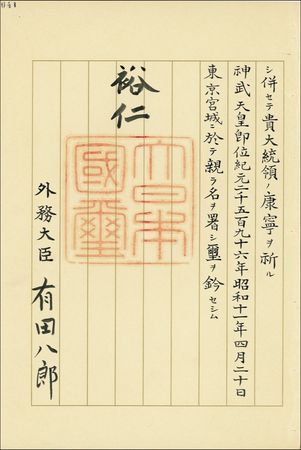 シ併セテ貴大統領ノ康寧ヲ祈ル
神武天皇即位紀元二千五百九十六年昭和十一年四月二十日
東京宮城ニ於テ親ラ名ヲ署シ璽ヲ鈐セシム
裕仁
大日本
國璽
外務大臣 有田八郎